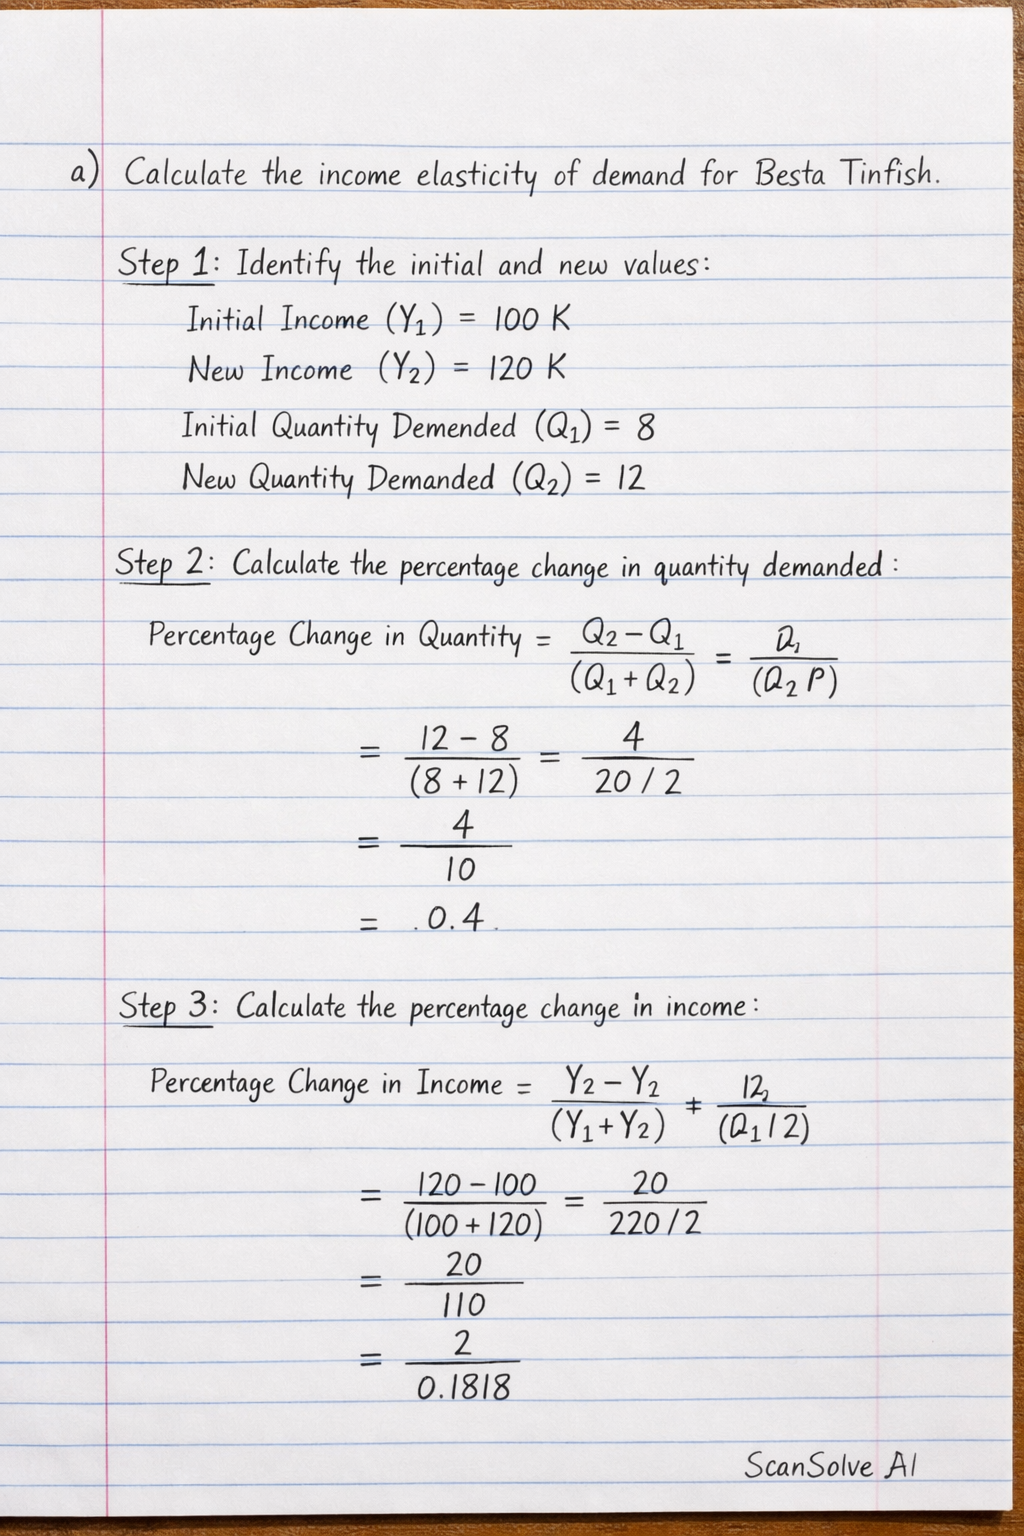 a) Calculate the income elasticity of demand for Besta Tinfish.
Step 1: Identify the initial and new values:
Initial Income (Y₁) = 100 K
New Income (Y₂) = 120 K
Initial Quantity Demended (Q₁) = 8
New Quantity Demanded (Q₂) = 12
Step 2: Calculate the percentage change in quantity demanded:
Percentage Change in Quantity = Q₂ − Q₁ / (Q₁ + Q₂) = / (Q₂ P)
= 12 − 8 / (8 + 12) = 4 / 20 / 2
= 4 / 10
= .0.4.
Step 3: Calculate the percentage change in income:
Percentage Change in Income = Y₂ − Y₂ / (Y₁ + Y₂) ≠ 12, / (Q₁ 1 2)
= 120 − 100 / (100 + 120) = 20 / 220 / 2
= 20 / 110
= 2 / 0.1818
ScanSolve AI